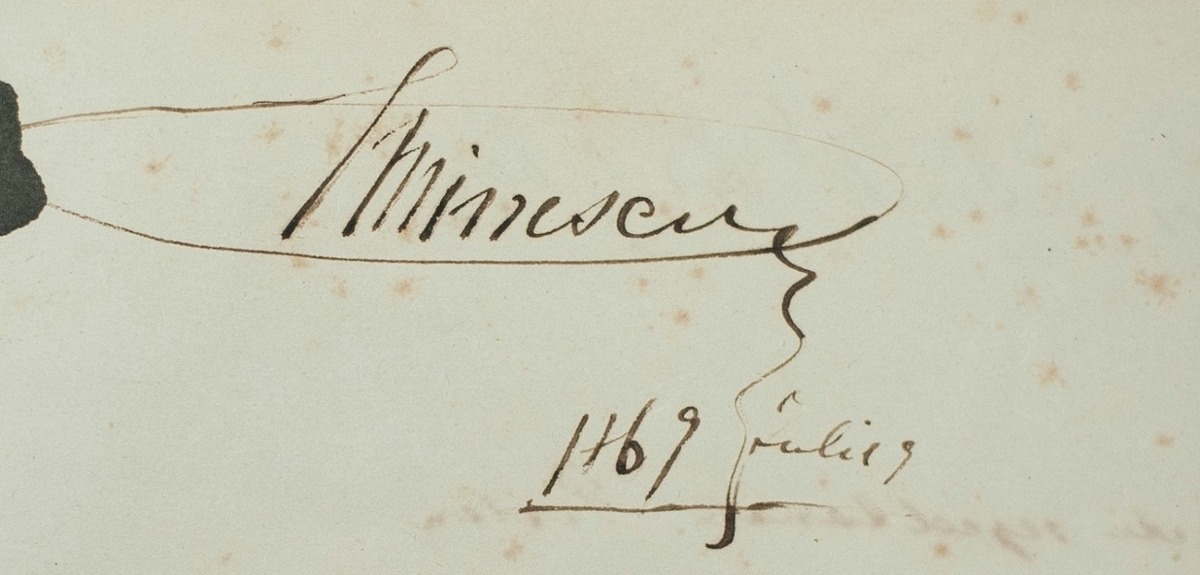 Eminescu
1869 Julie 9